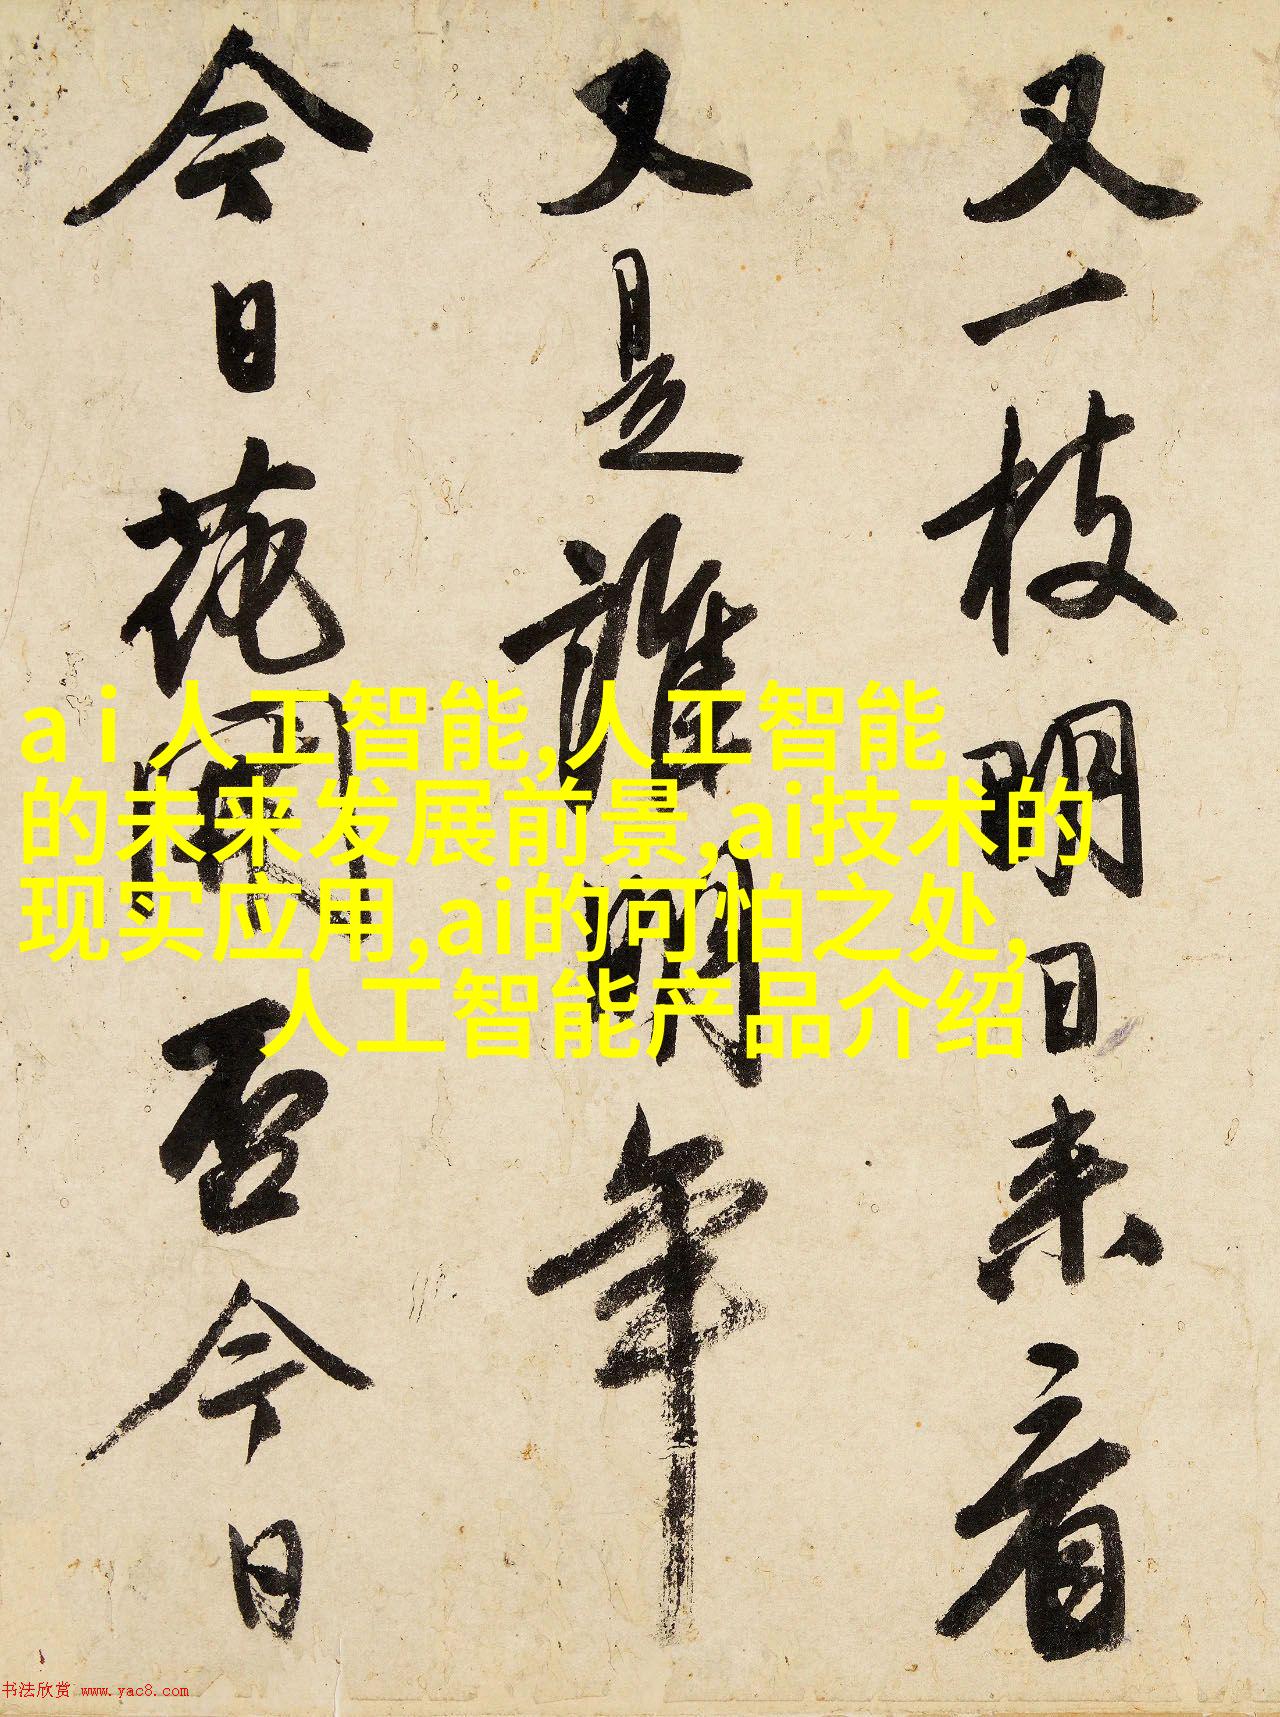 又一枝明日来看
又是誰明年
今日花開否今日
ai人工智能,人工智能
的未来发展前景,ai技术的
现实应用,ai的可怕之处,
人工智能产品介绍
书法欣赏 www.yac8.com